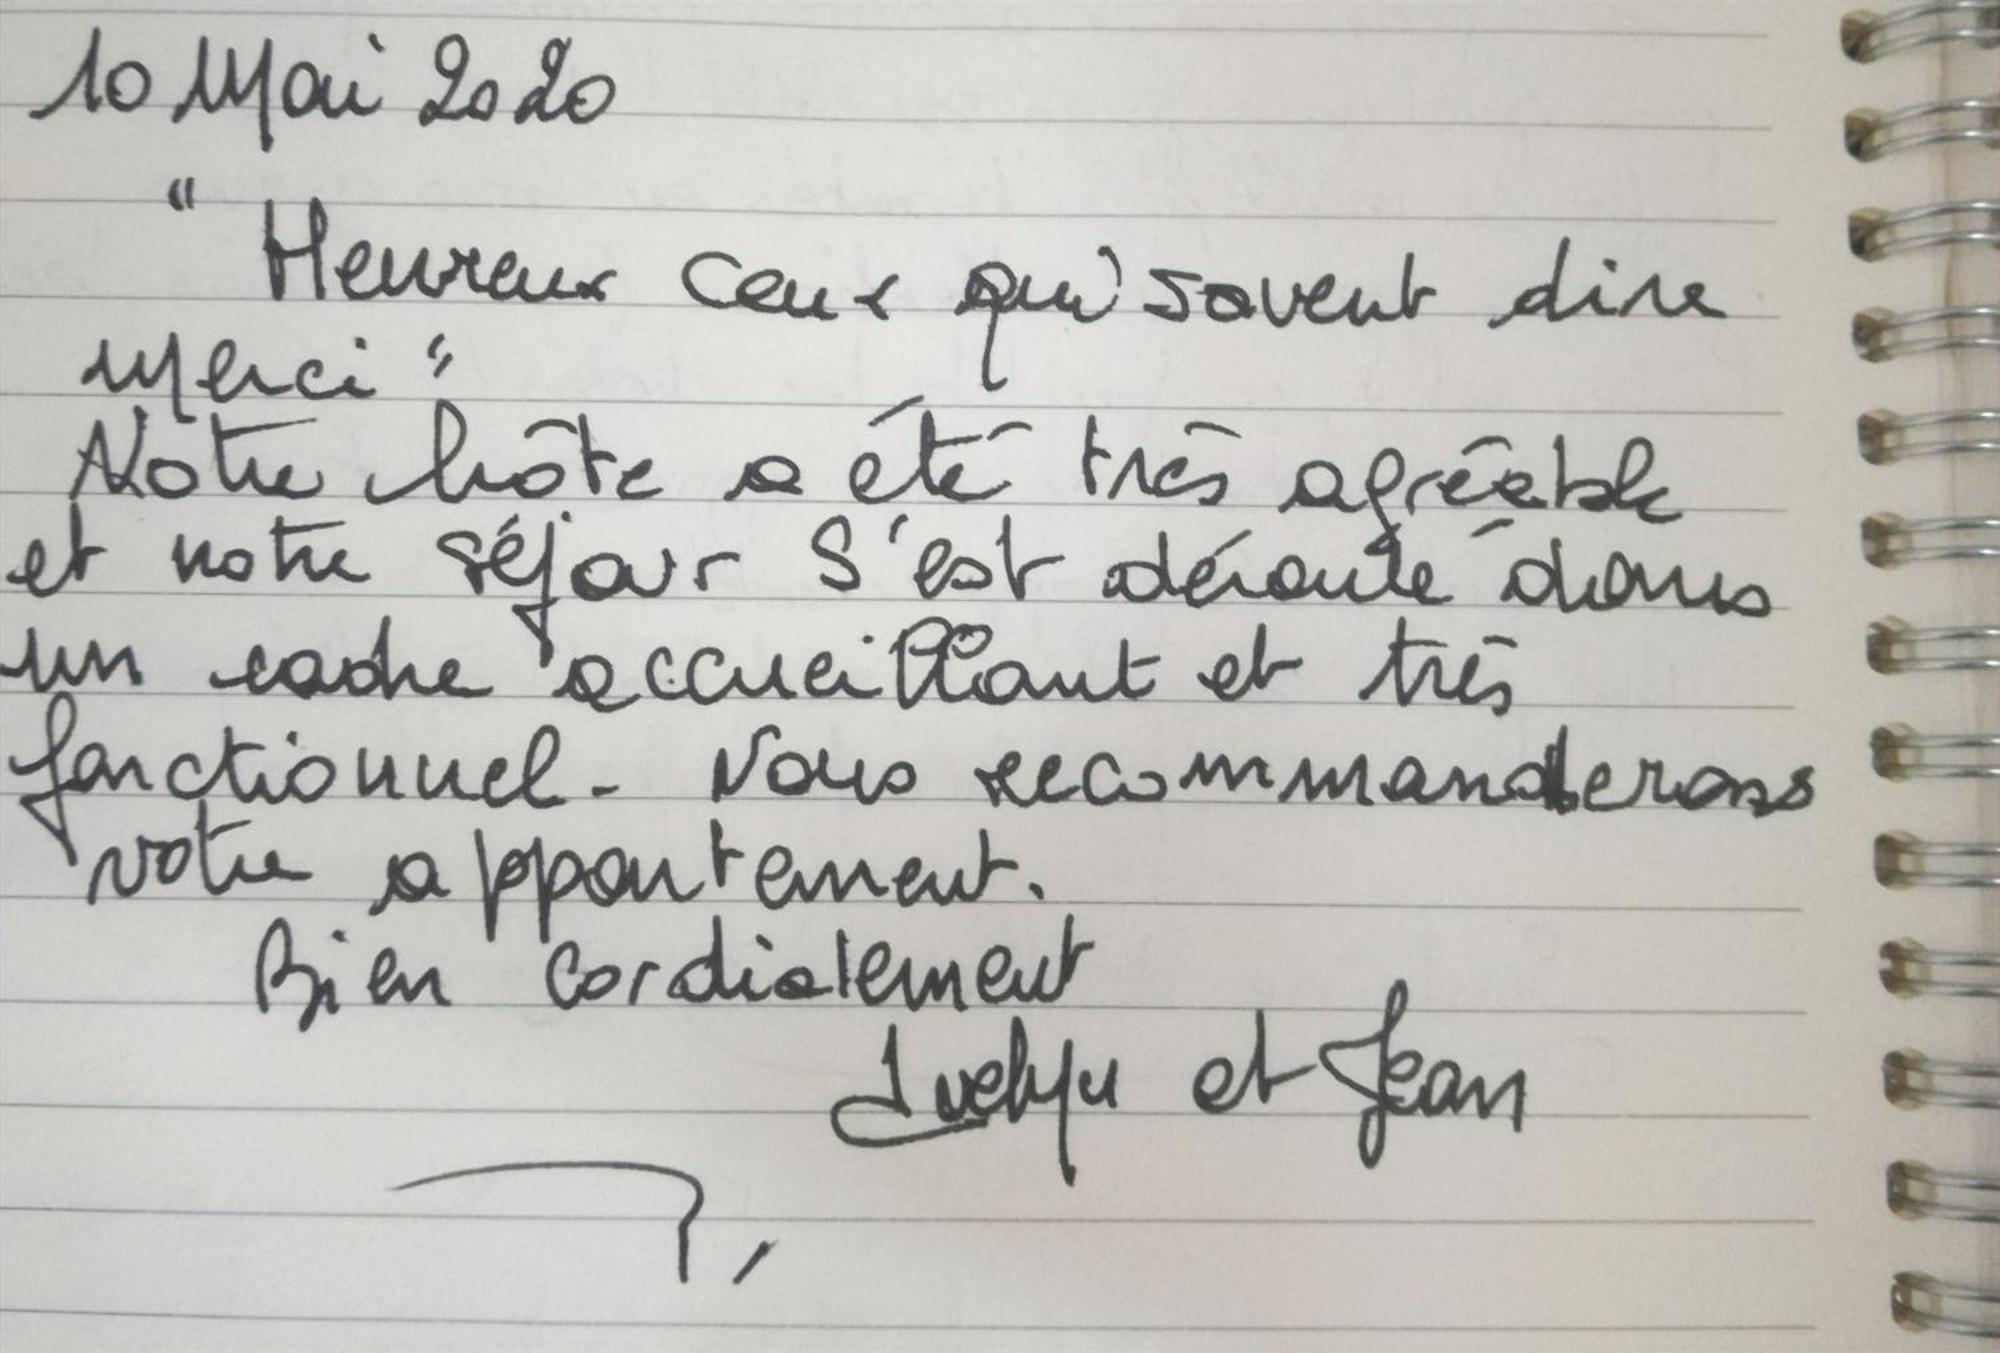 10 Mai 2020
" Heureux ceux qui savent dire
merci "
Notre hôte a été très agréable
et notre séjour s'est déroulé dans
un cadre accueillant et très
fonctionnel - Nous recommanderons
votre appartement.
Bien cordialement
Evelyn et Jean